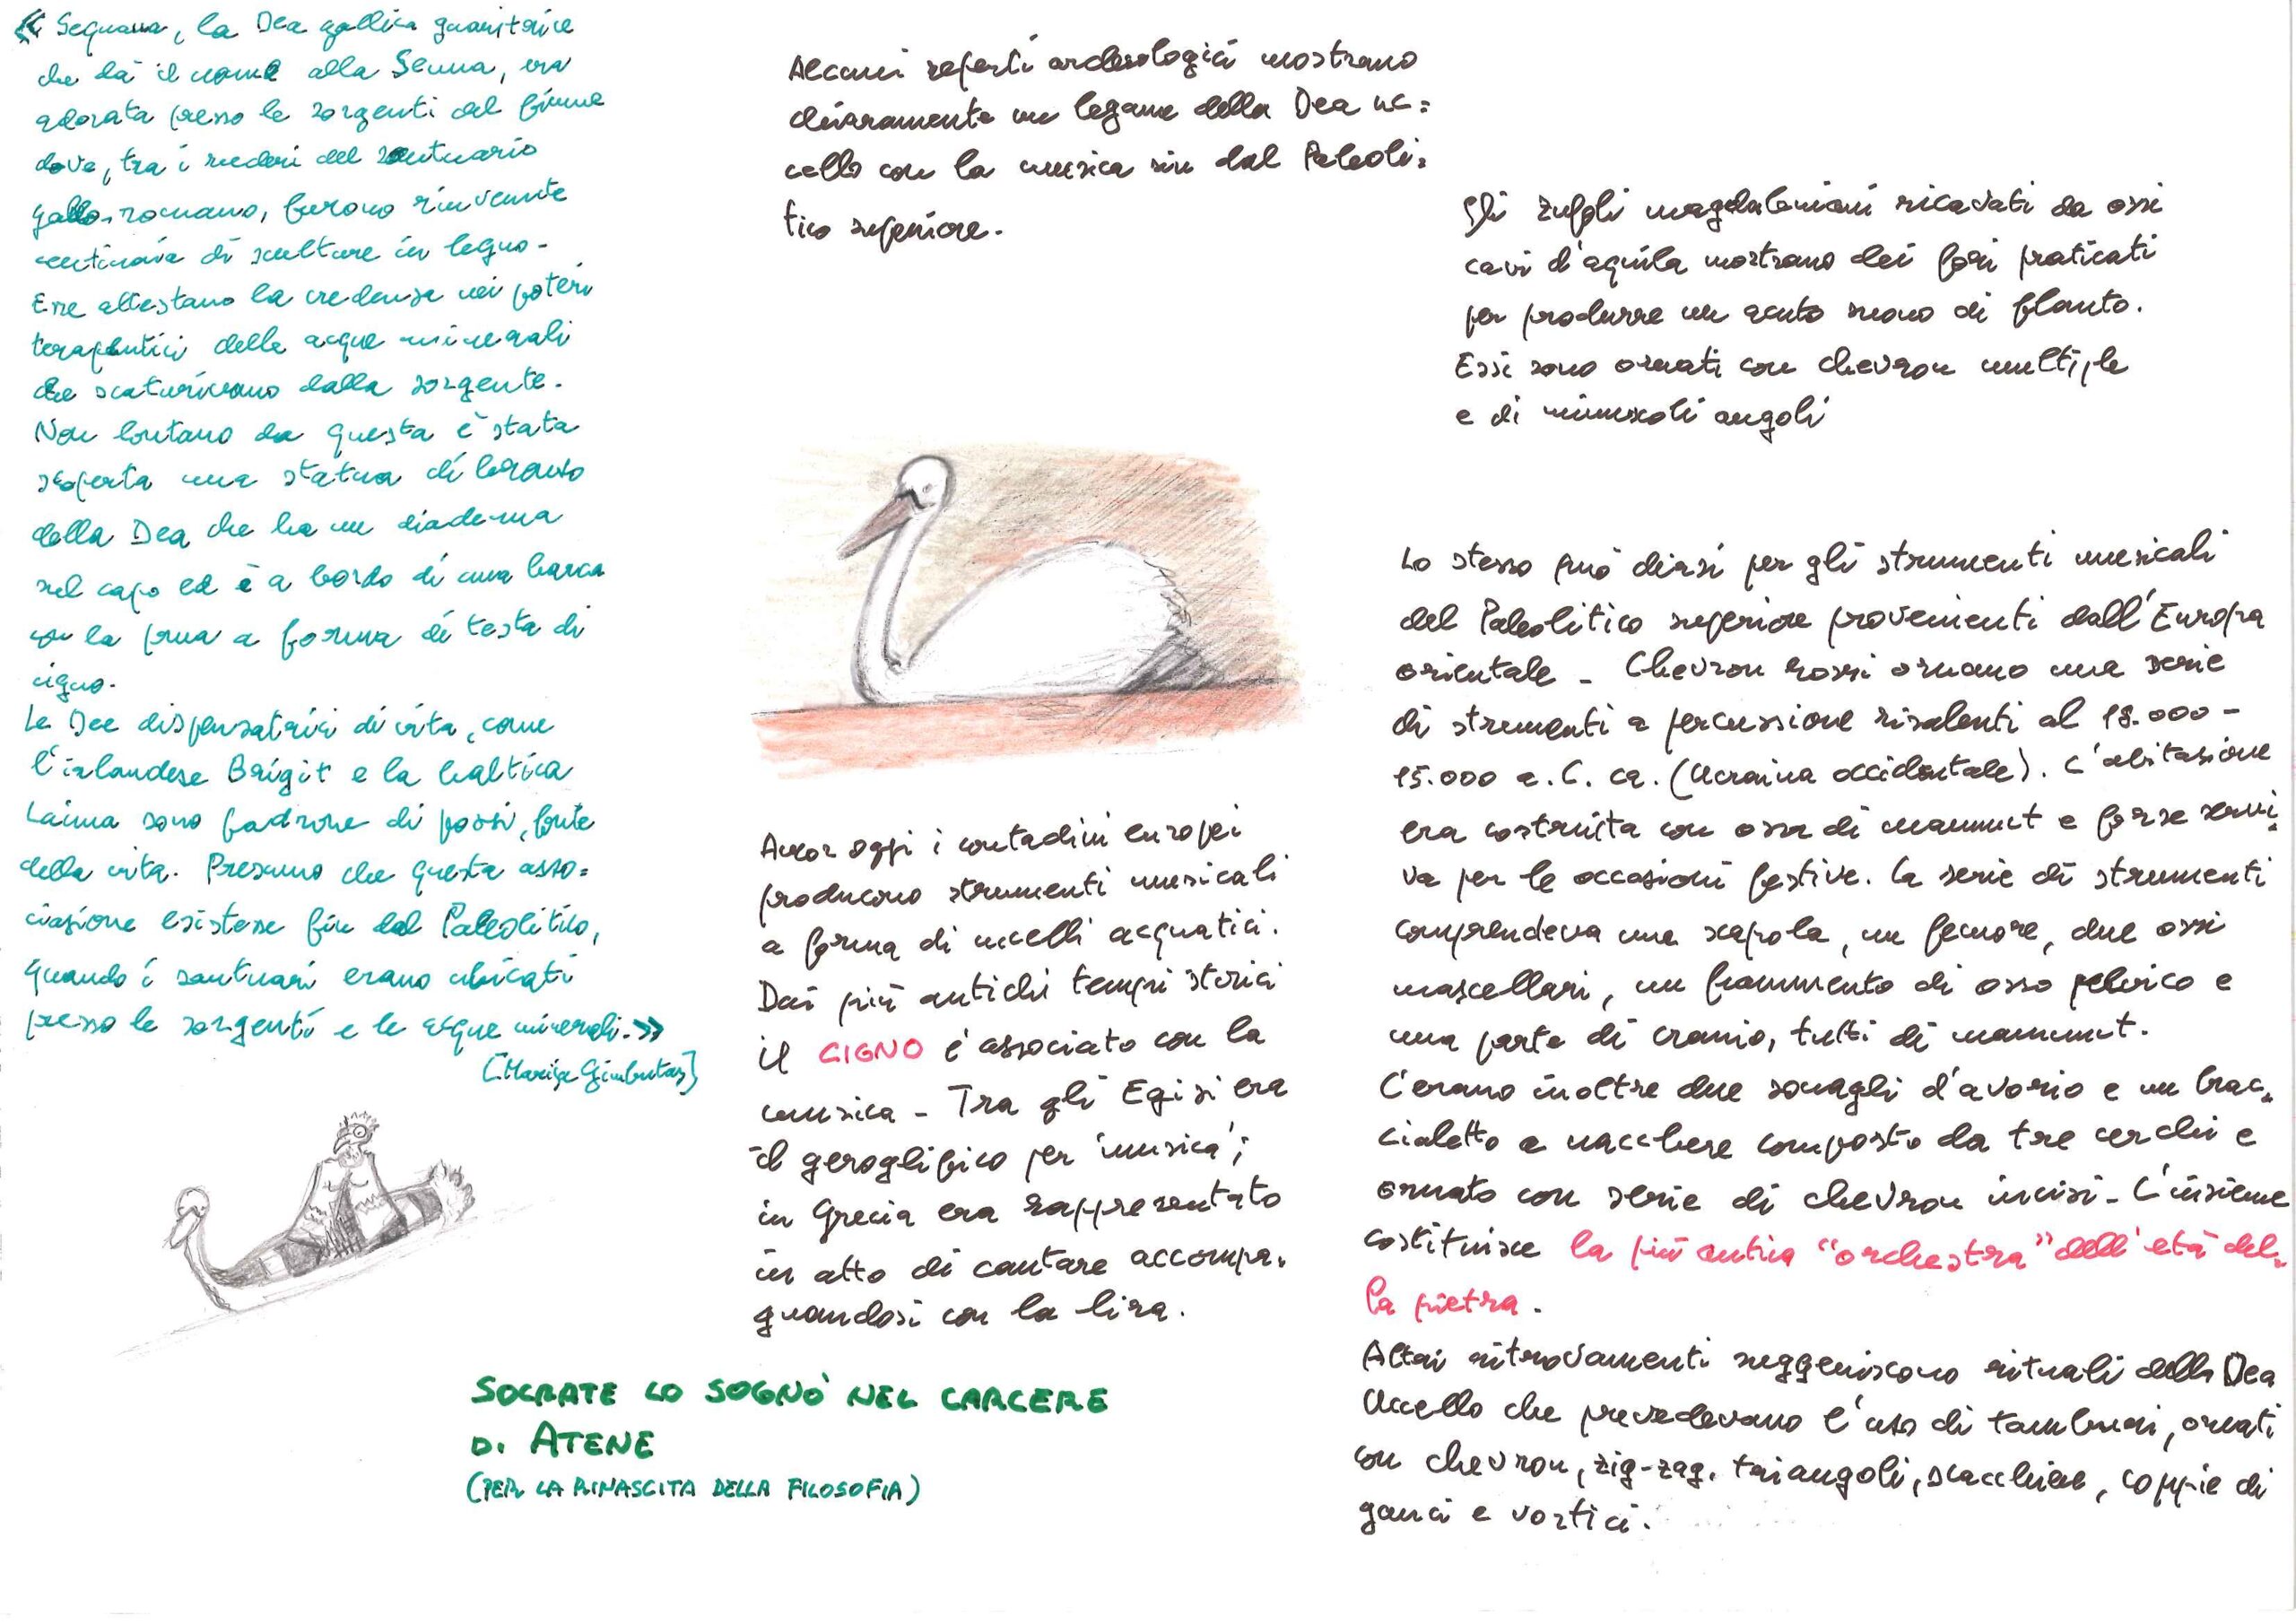 « Sequana, la Dea gallica guaritrice
che dà il nome alla Senna, era
adorata presso le sorgenti del fiume
dove, tra i ruderi del santuario
gallo-romano, furono rinvenute
centinaia di sculture in legno-
Esse attestano la credenza nei poteri
terapeutici delle acque minerali
che scaturivano dalla sorgente.
Non lontano da questa è stata
scoperta una statua di bronzo
della Dea che ha un diadema
sul capo ed è a bordo di una barca
con la prua a forma di testa di
cigno.
Le Dee dispensatrici di vita, come
l'irlandese Brigit e la baltica
Laima sono padrone di pozzi, fonte
della vita. Presumo che questa asso=
ciazione esistesse fin dal Paleolitico,
quando i santuari erano ubicati
presso le sorgenti e le acque minerali.»
[Marija Gimbutas]
Alcuni reperti archeologici mostrano
chiaramente un legame della Dea uc=
cello con la musica sin dal Paleoli=
tico superiore.
Ancor oggi i contadini europei
producono strumenti musicali
a forma di uccelli acquatici.
Dai più antichi tempi storici
il CIGNO è associato con la
musica - Tra gli Egizi era
il geroglifico per 'musica';
in Grecia era rappresentato
in atto di cantare accompa=
gnandosi con la lira.
SOCRATE LO SOGNÒ NEL CARCERE
DI ATENE
(PER LA RINASCITA DELLA FILOSOFIA)
Gli zufoli magdaleniani ricavati da ossi
cavi d'aquila mostrano dei fori praticati
per produrre un acuto suono di flauto.
Essi sono ornati con chevron multiple
e di minuscoli angoli
Lo stesso può dirsi per gli strumenti musicali
del Paleolitico superiore provenienti dall'Europa
orientale - Chevron rossi ornano una serie
di strumenti a percussione risalenti al 18.000-
15.000 a.C. ca. (Ucraina occidentale). L'abitazione
era costruita con ossa di mammut e forse servi=
va per le occasioni festive. La serie di strumenti
comprendeva una scapola, un femore, due ossi
mascellari, un frammento di osso pelvico e
una parte di cranio, tutti di mammut.
C'erano inoltre due sonagli d'avorio e un brac=
cialetto a nacchere composto da tre cerchi e
ornato con serie di chevron incisi- L'insieme
costituisce la più antica "orchestra" dell'età del=
la pietra.
Altri ritrovamenti suggeriscono rituali della Dea
Uccello che prevedevano l'uso di tamburi, ornati
con chevron, zig-zag, triangoli, scacchiere, coppie di
ganci e vortici.